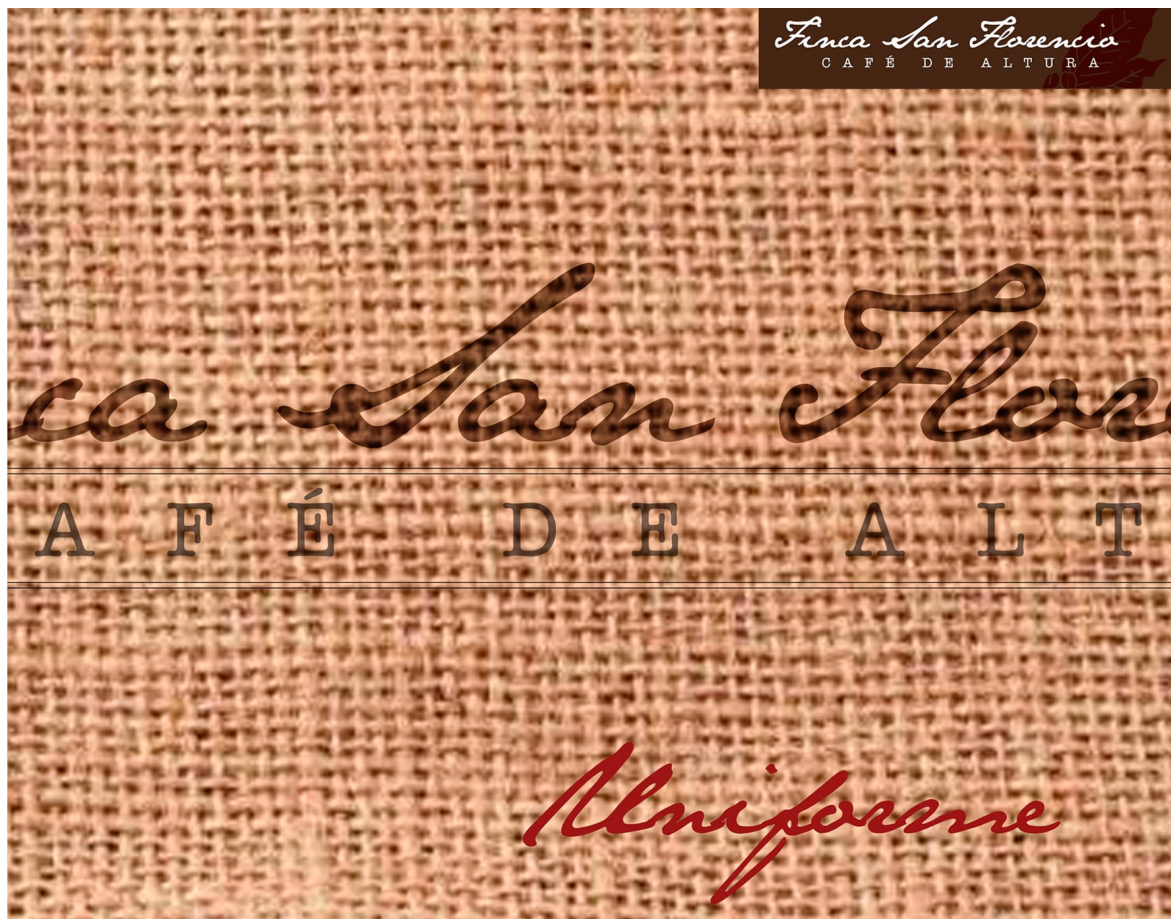 Finca San Florencio
CAFÉ DE ALTURA
ca San Flor
AFÉ DE ALT
Uniforme